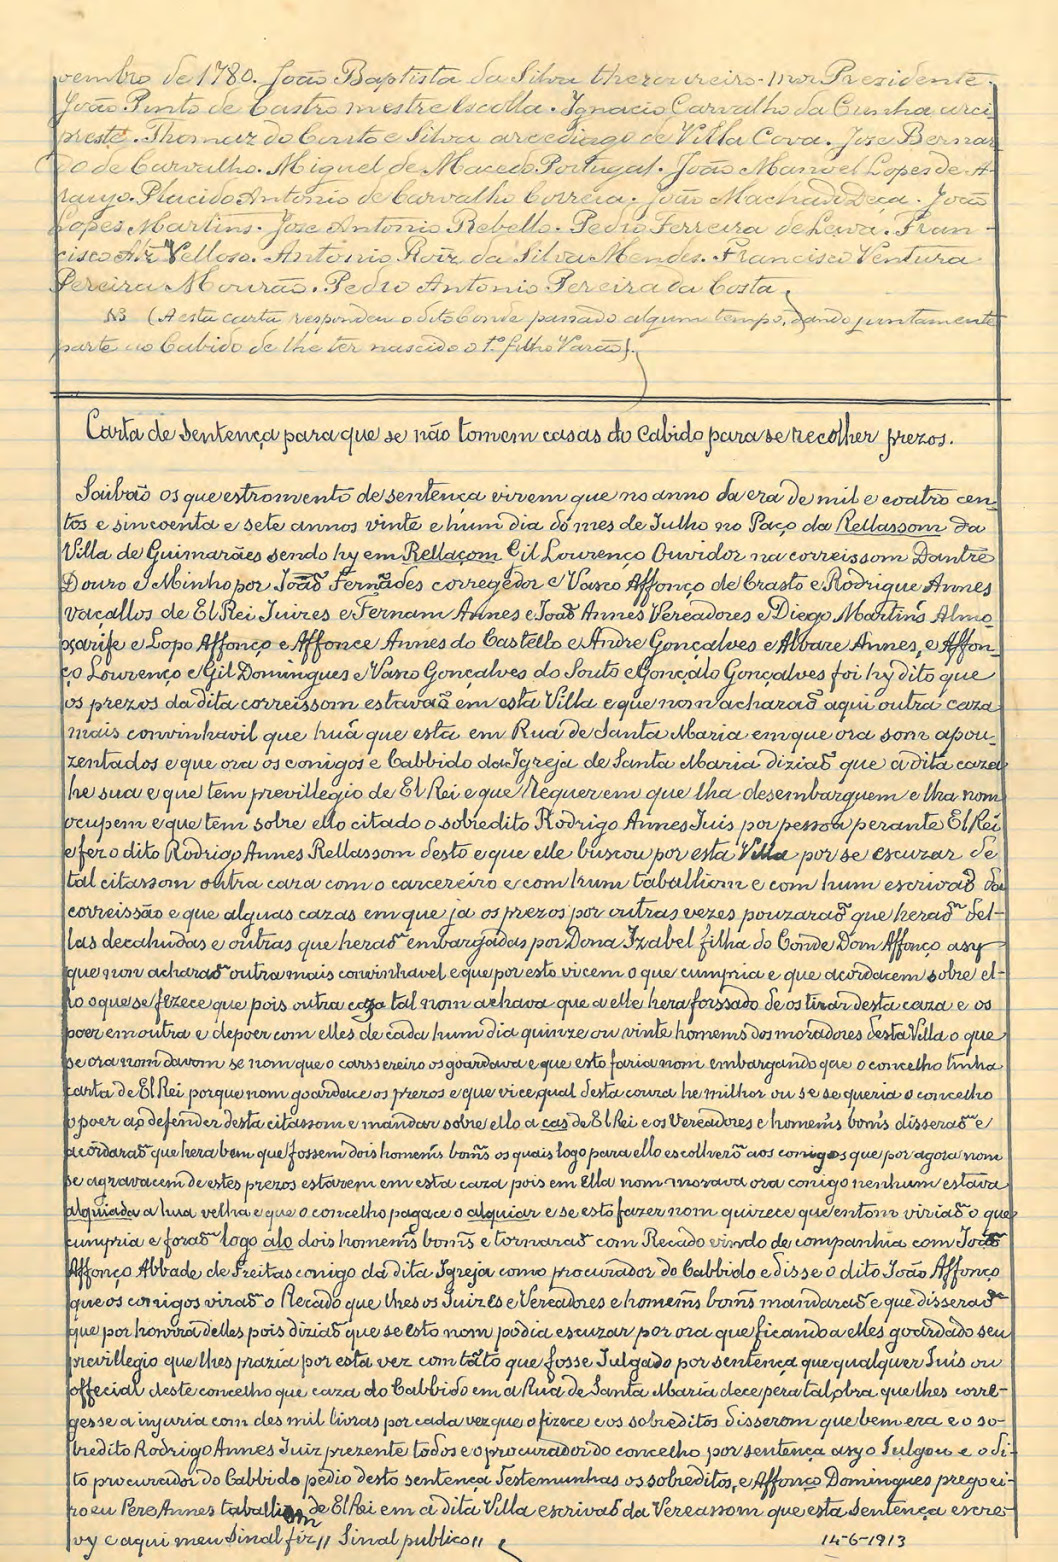 vembro de 1780. João Baptista da Silva thezoureiro-mor Presidente.
João Pinto de Castro mestre Escolla. Ignacio Carvalho da Cunha arci
preste. Thomaz do Couto e Silva arcediago de Villa Cova. Jose Bernar
do de Carvalho. Miguel de Macedo Portugal. João Manoel Lopes de A-
raujo. Placido Antonio de Carvalho Correia. João Machado Deça. João
Lopes Martins. Jose Antonio Rebello. Pedro Ferreira de Leiva. Fran-
cisco Alz Velloso. Antonio Roiz da Silva Mendes. Francisco Ventura
Pereira Mourão. Pedro Antonio Pereira da Costa
NB (A esta carta respondeu o dito Conde passado algum tempo, dando juntamente
parte ao Cabido de lhe ter nascido o 1º filho Varão).
Carta de Sentença para que se não tomem casas do Cabido para se recolher prezos.
Saibão os que estromento de sentença virem que no anno da era de mil e coatro cen-
tos e sincoenta e sete annos vinte e hum dia do mes de Julho no Paço da Rellassom da
Villa de Guimarães sendo hy em Rellaçom Gil Lourenço Ouvidor na correissom Dantre
Douro e Minho por João Fernãdes corregedor e Vasco Affonço de Crasto e Rodrigue Annes
vaçallos de El Rei Juizes e Fernam Annes e João Annes Vereadores e Diego Martins Almo-
xarife e Lopo Affonço e Affonce Annes do Castello e Andre Gonçalves e Alvare Annes, e Affon-
ço Lourenço e Gil Domingues e Vasco Gonçalves do Souto e Gonçalo Gonçalves foi hy dito que
os prezos da dita correissom estavaõ em esta Villa e que nom acharaõ aqui outra caza
mais convinhavil que huã que esta em Rua de Santa Maria em que ora som apou-
zentados e que ora os conigos e Cabbido da Igreja de Santa Maria diziaõ que a dita caza
he sua e que tem previllegio de El Rei e que requerem que lha desembarguem e lha nom
ocupem e que tem sobre ello citado o sobredito Rodrigo Annes Juis por pessoa perante El Rei
e fez o dito Rodrigo Annes Rellassom desto e que elle buscou por esta Villa por se escuzar de
tal citassom outra caza com o carcereiro e com hum taballiom e com hum escrivaõ da
correissão e que alguas cazas em que ja os prezos por outras vezes pouzaraõ que heraõ del-
las decahudas e outras que heraõ embargadas por Dona Izabel filha do Conde Dom Affonço asy
que non acharaõ outra mais convinhavel e que por esto vicem o que cumpria e que acordacem sobre el-
ho o que se fizece que pois outra caza tal nom achava que a elle hera forssado de os tirar desta caza e os
poer em outra e depoer com elles de cada hum dia quinze ou vinte homems dos moradores desta Villa o que
se ora nom davom se nom que o carssereiro os goardava e que esto faria nom embargando que o concelho tinha
carta de El Rei porque nom goardace os prezos e que vice qual desta couza he milhor ou se se queria o concelho
opoer ao defender desta citassom e mandar sobre ello a cas de El Rei e os Vereadores e homems boms disseraõ e
acordaraõ que hera bem que fossem dois homems boms os quais logo para ello escolheroõ aos conigos que por agora nom
se agravacem de estes prezos estarem em esta caza pois em Ella nom morava ora conigo nenhum estava
alquiada a hua velha e que o concelho pagace o alquier e se esto fazer nom quizece que entom viriaõ o que
cumpria e foraõ logo alo dois homems boms e tornaraõ com Recado vindo de companhia com João
Affonço Abbade de Freitas conigo da dita Igreja como procurador do Cabbido e disse o dito João Affonço
que os conigos viraõ o Recado que lhes os Juizes e Vereadores e homems boms mandaraõ e que disseraõ
que por honra delles pois diziaõ que se esto nom podia escuzar por ora que ficando a elles goardado seu
previllegio que lhes prazia por esta vez com tãto que fosse Julgado por sentença que qualquer Juis ou
offecial deste concelho que caza do Cabbido em a Rua de Santa Maria dece pera tal obra que lhes corre-
gesse a injuria com des mil livras por cada vez que o fizece e os sobreditos disserom que bem era e o so-
bredito Rodrigo Annes Juiz prezente todos e o procurador do concelho por sentença asy o Julgou e o di-
to procurador do Cabbido pedio desto sentença Testemunhas os sobreditos, e Affonço Domingues pregoei-
ro eu Pero Annes taballiom de El Rei em a dita Villa escrivaõ da Vereassom que esta Sentença escre-
vy e aqui meu Sinal fiz // Sinal publico //
14-6-1913